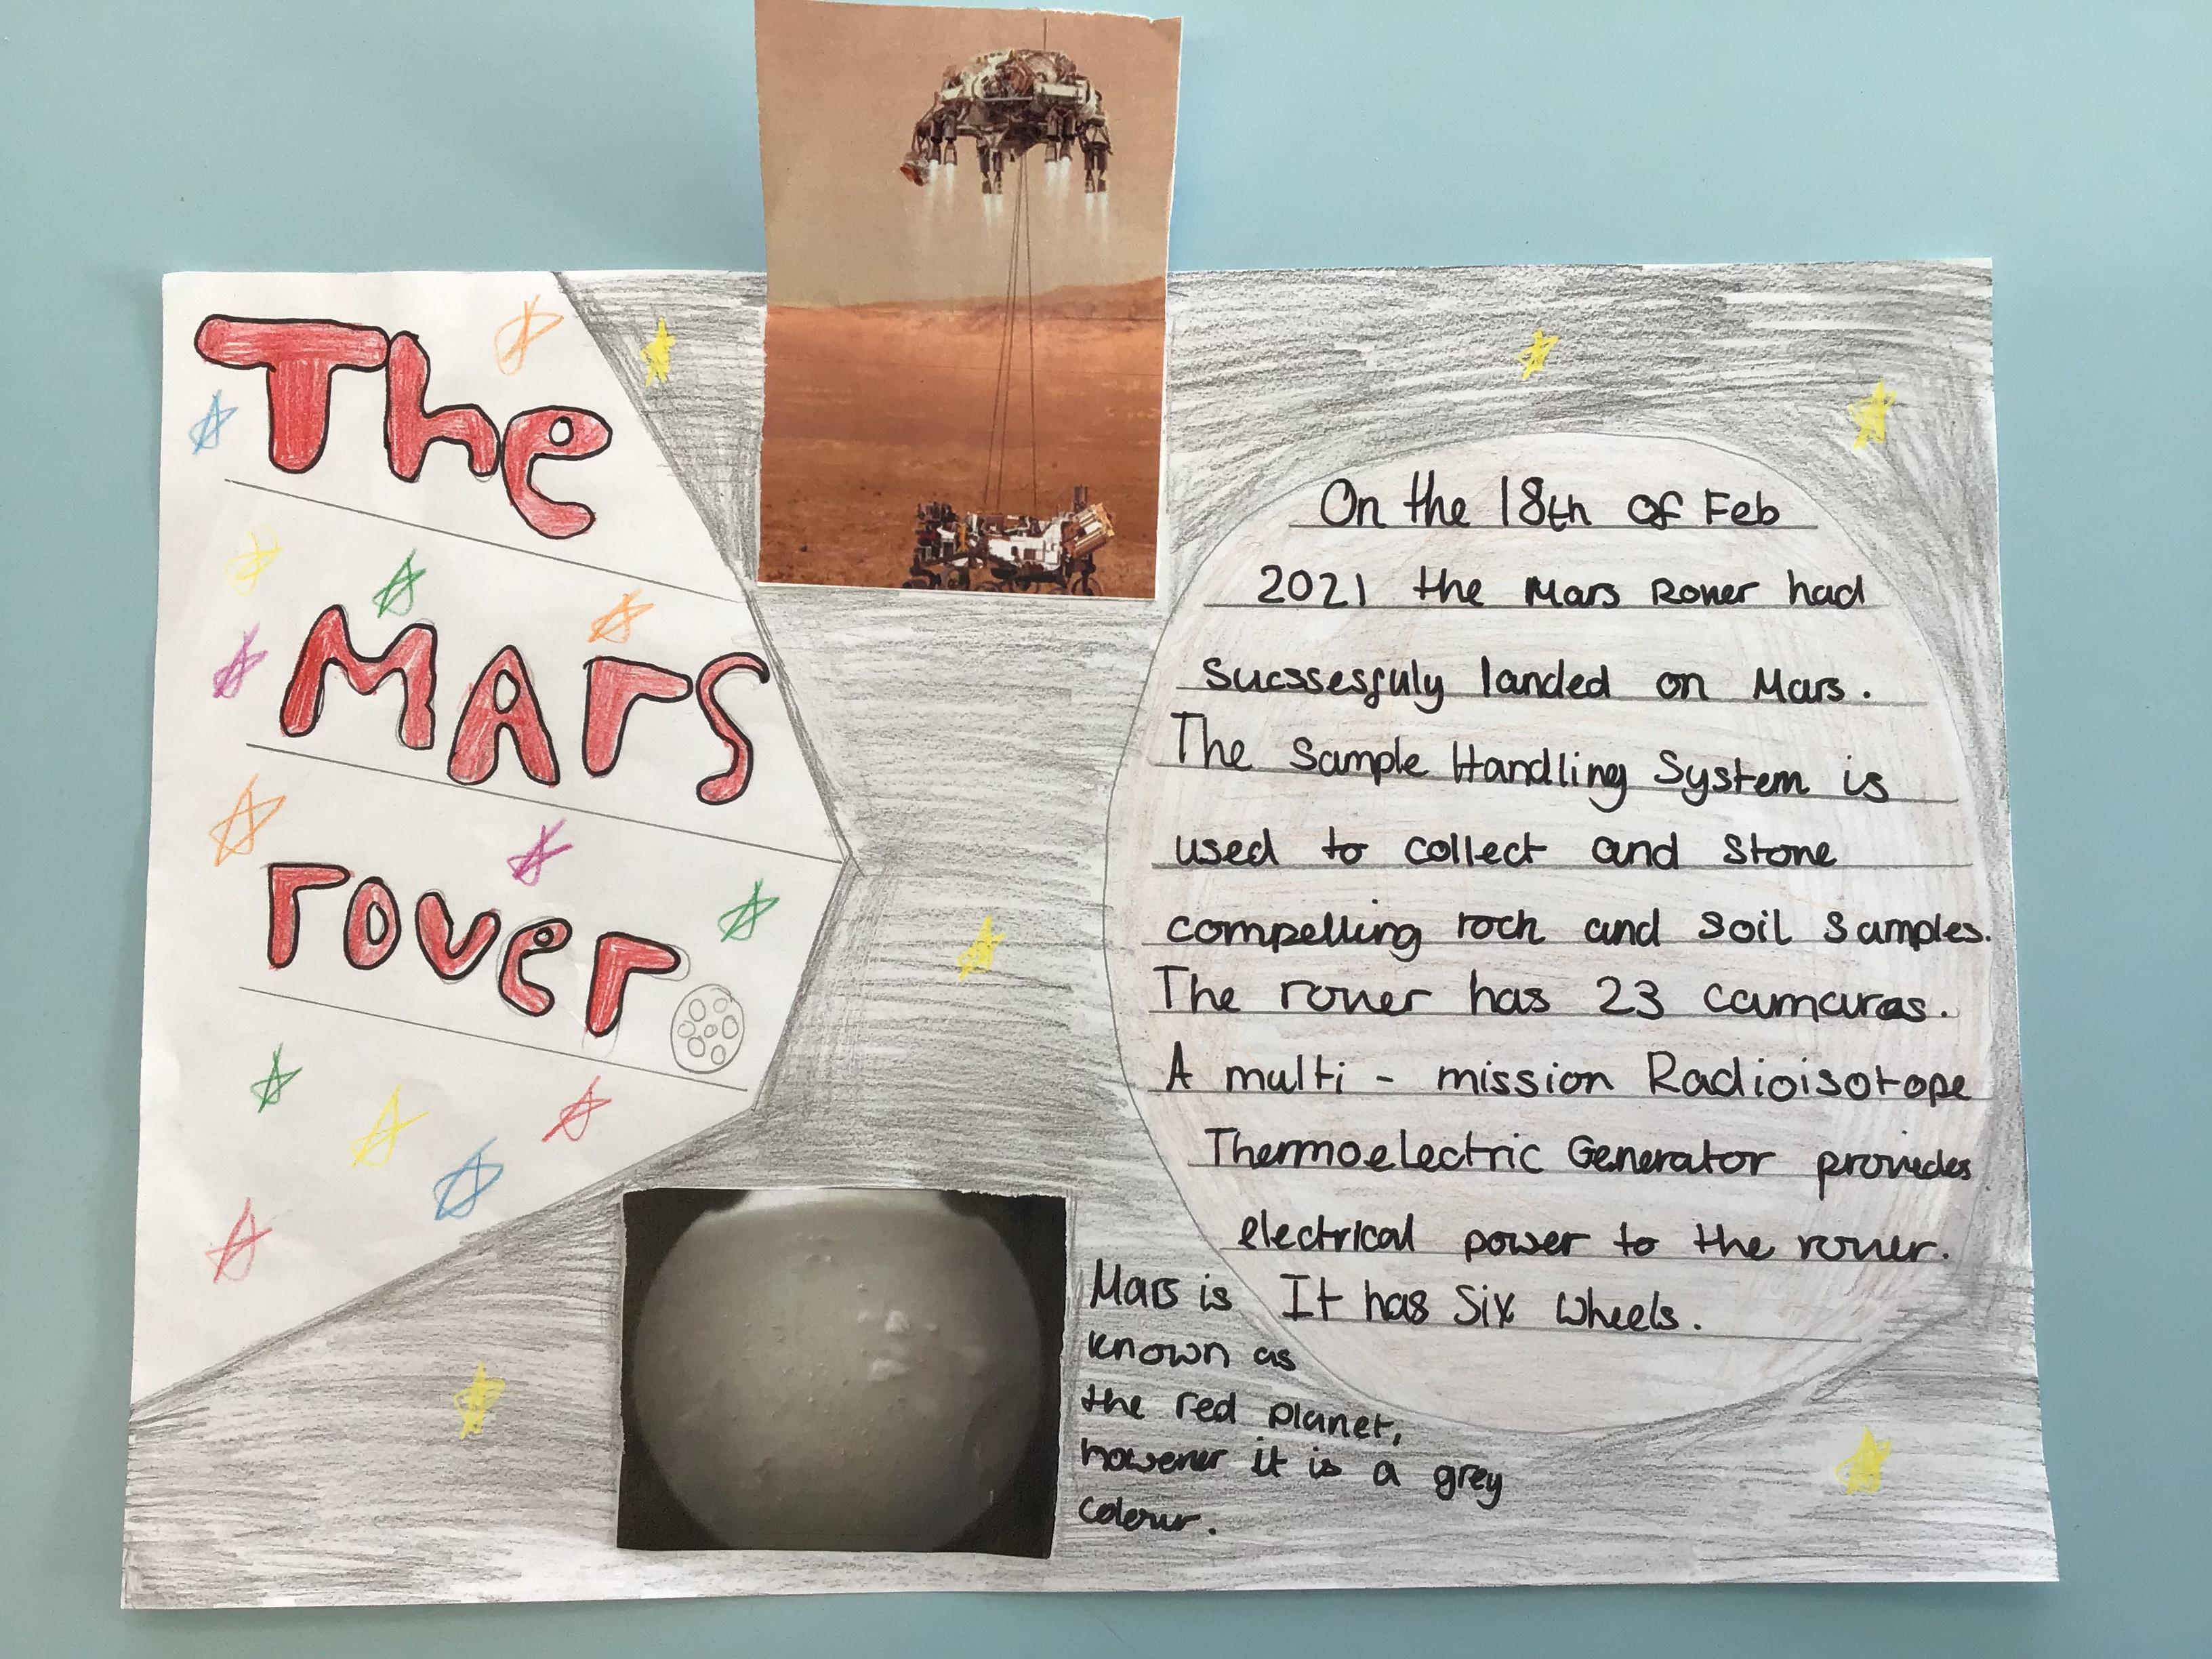 The
MArs
rover
On the 18th of Feb
2021 the Mars Rover had
sucssesfuly landed on Mars.
The Sample Handling System is
used to collect and stone
compelling rock and soil samples.
The rover has 23 camaras.
A multi - mission Radioisotope
Thermoelectric Generator provides
electrical power to the rover.
It has six wheels.
Mars is
known as
the red planet,
however it is a grey
colour.